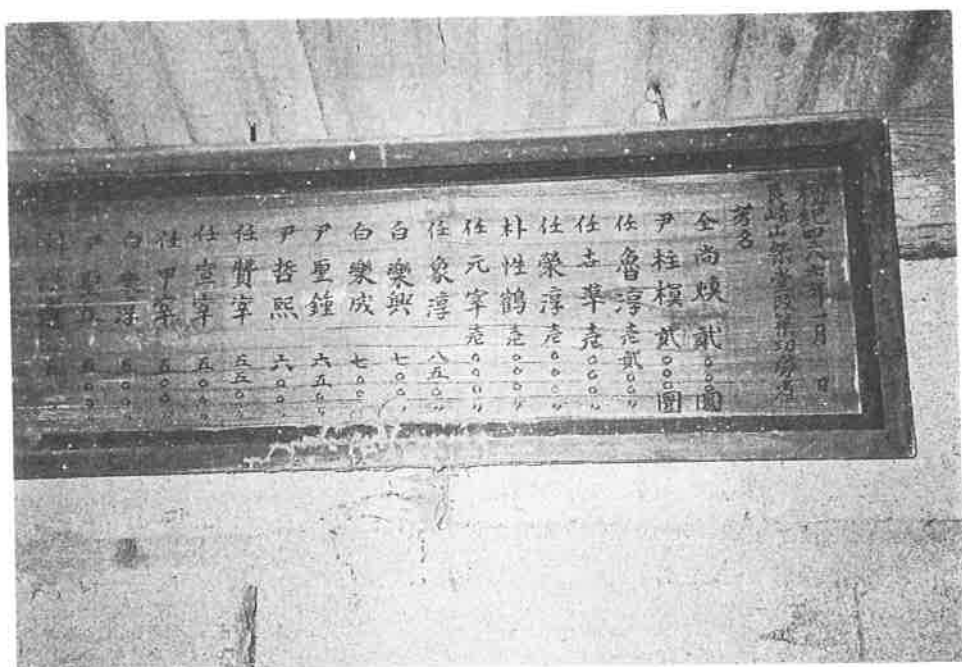 檀紀四二八七年一月 日
山祭堂 功勞者
芳名
全尚煥 貳〇〇〇圜
尹柱槇 貳〇〇〇圜
任魯淳 壱貳〇〇〃
任吉準 壱〇〇〇〃
任榮淳 壱〇〇〇〃
朴性鶴 壱〇〇〇〃
任元宰 壱〇〇〇〃
任象淳 八五〇〃
白樂興 七〇〇〃
白樂成 七〇〇〃
尹聖鐘 六五〇〃
尹哲熙 六〇〇〃
任贊宰 五五〇〃
任宣宰 五〇〇〃
任甲宰 五〇〇〃
白樂淳 五〇〇〃
尹 五 五〇〇〃
朴